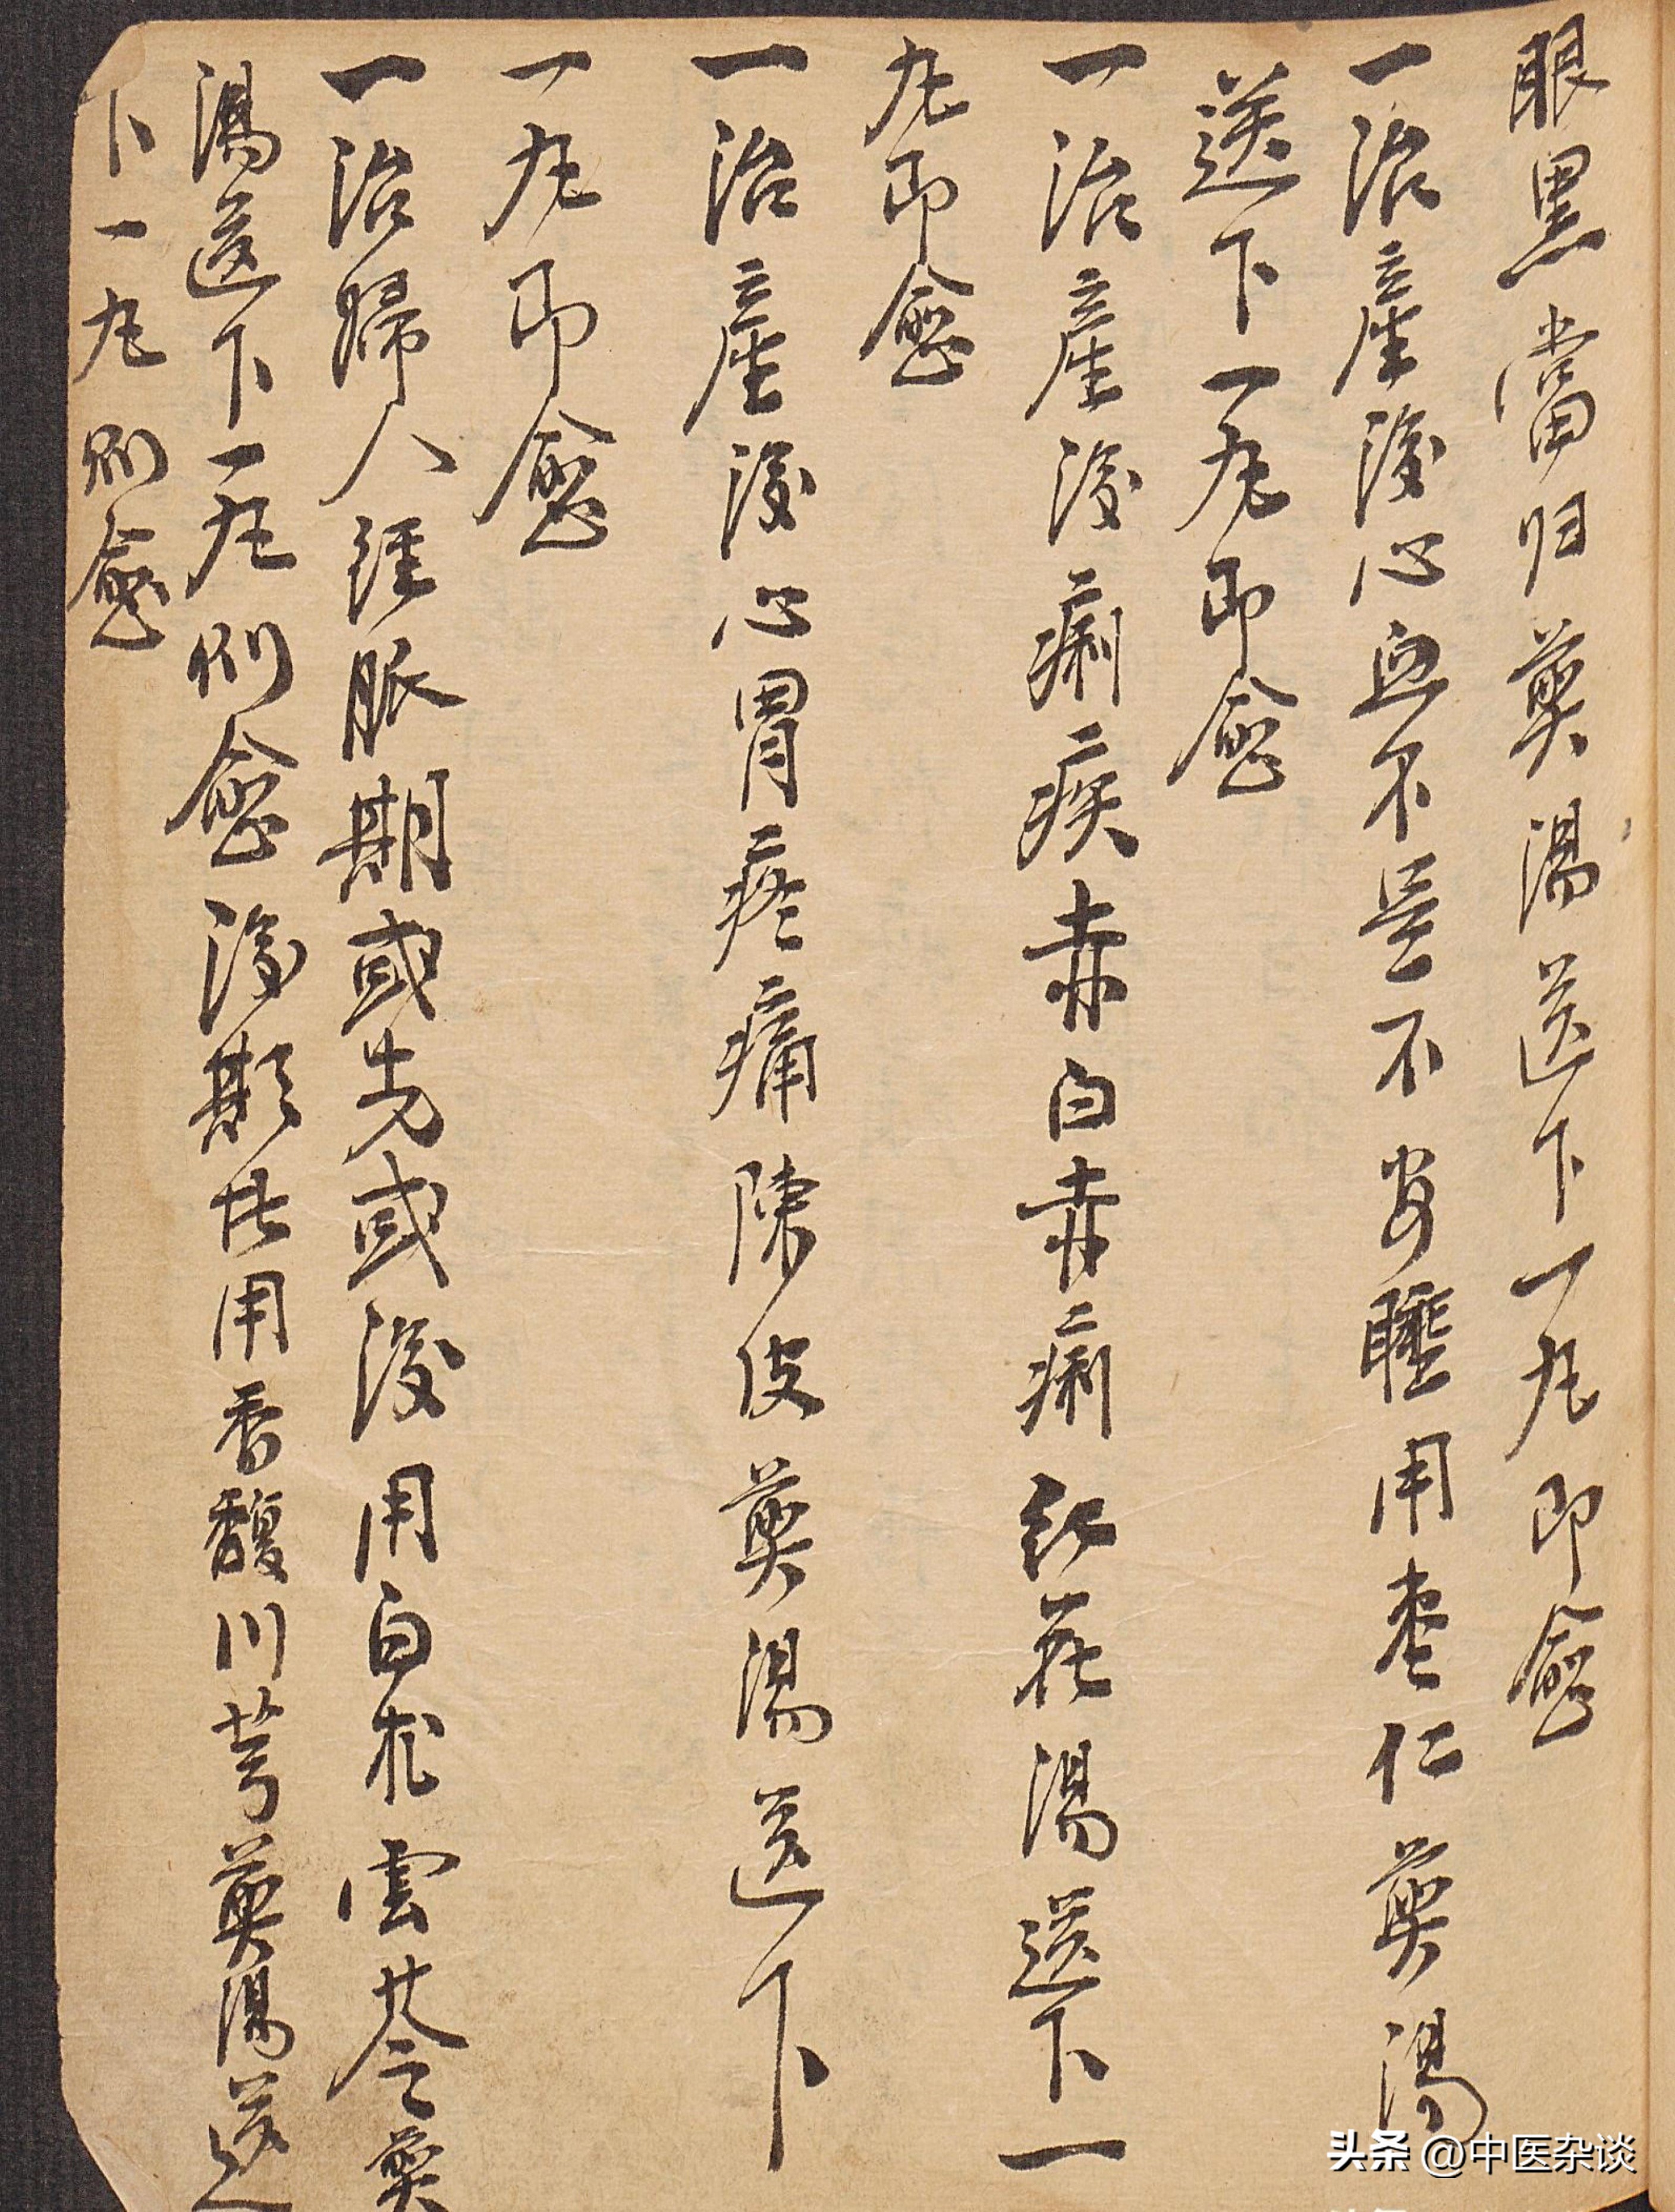 眼黑當归煎湯送下一丸即愈
一治產後心血不足不安睡用枣仁煎湯
送下一丸即愈
一治產後痢疾赤白赤痢红花湯送下一
丸即愈
一治產後心胃疼痛陳皮煎湯送下
一丸即愈
一治婦人經脈期或先或後用白朮雲苓煎
湯送下一丸則愈後期者用香馥川芎煎湯送
下一丸則愈
头条 @中医杂谈